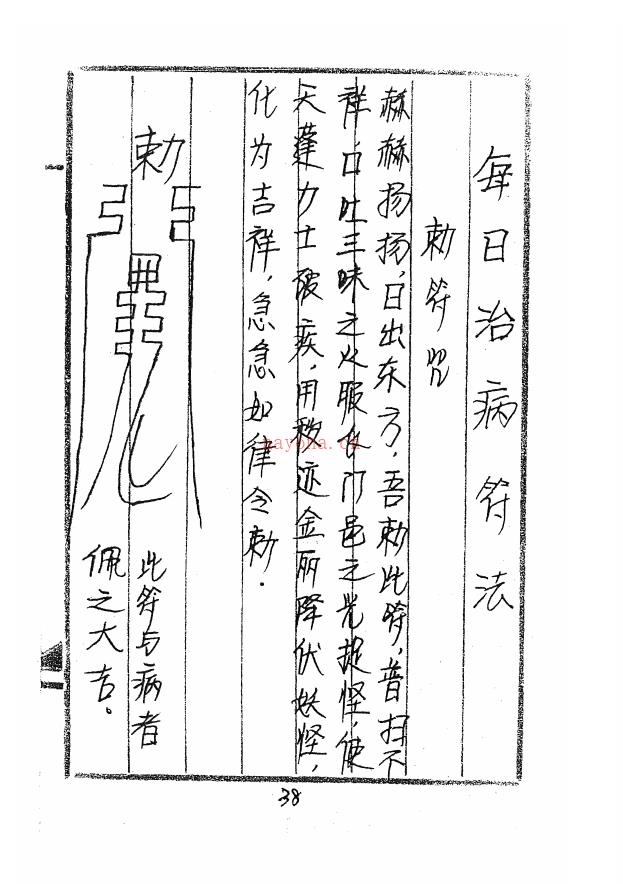 每日治病符法
勅符咒
赫赫扬扬，日出东方，吾勅此符，普扫不
祥，口吐三昧之火，服飞门邑之光，捉怪，使
天蓬力士破疾，用秽迹金刚降伏妖怪，
化为吉祥，急急如律令勅．
勅
此符与病者
佩之大吉。
38